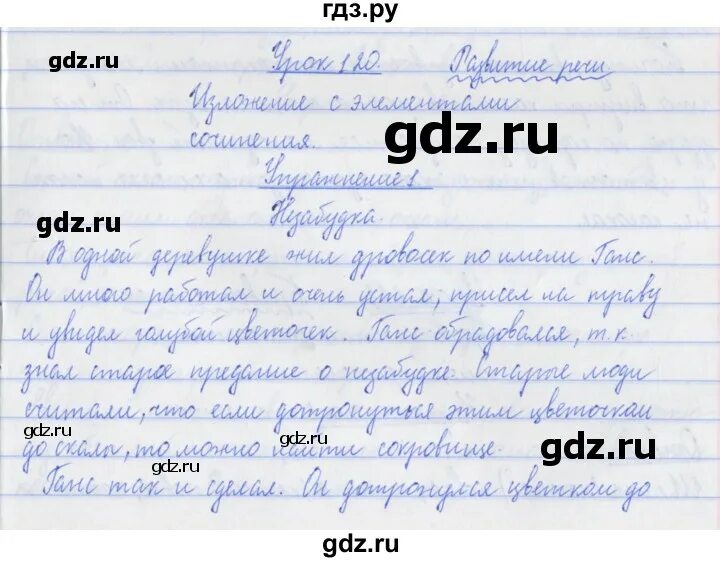 гдз.ру
Урок 120. Развитие речи
Изложение с элементами
сочинения.
gdz.ru
Упражнение 1.
gdz.ru
Незабудка.
В одной деревушке жил дровосек по имени Ганс.
gdz.ru
Он много работал и очень устал, присел на траву
и увидел голубой цветочек. Ганс обрадовался, т. к.
знал старое предание о незабудке. Старые люди
считали, что если дотронуться этим цветочком
gdz.ru gdz.ru
до скалы, то можно найти сокровище.
gdz.ru gdz.ru
Ганс так и сделал. Он дотронулся цветком до
gdz.ru